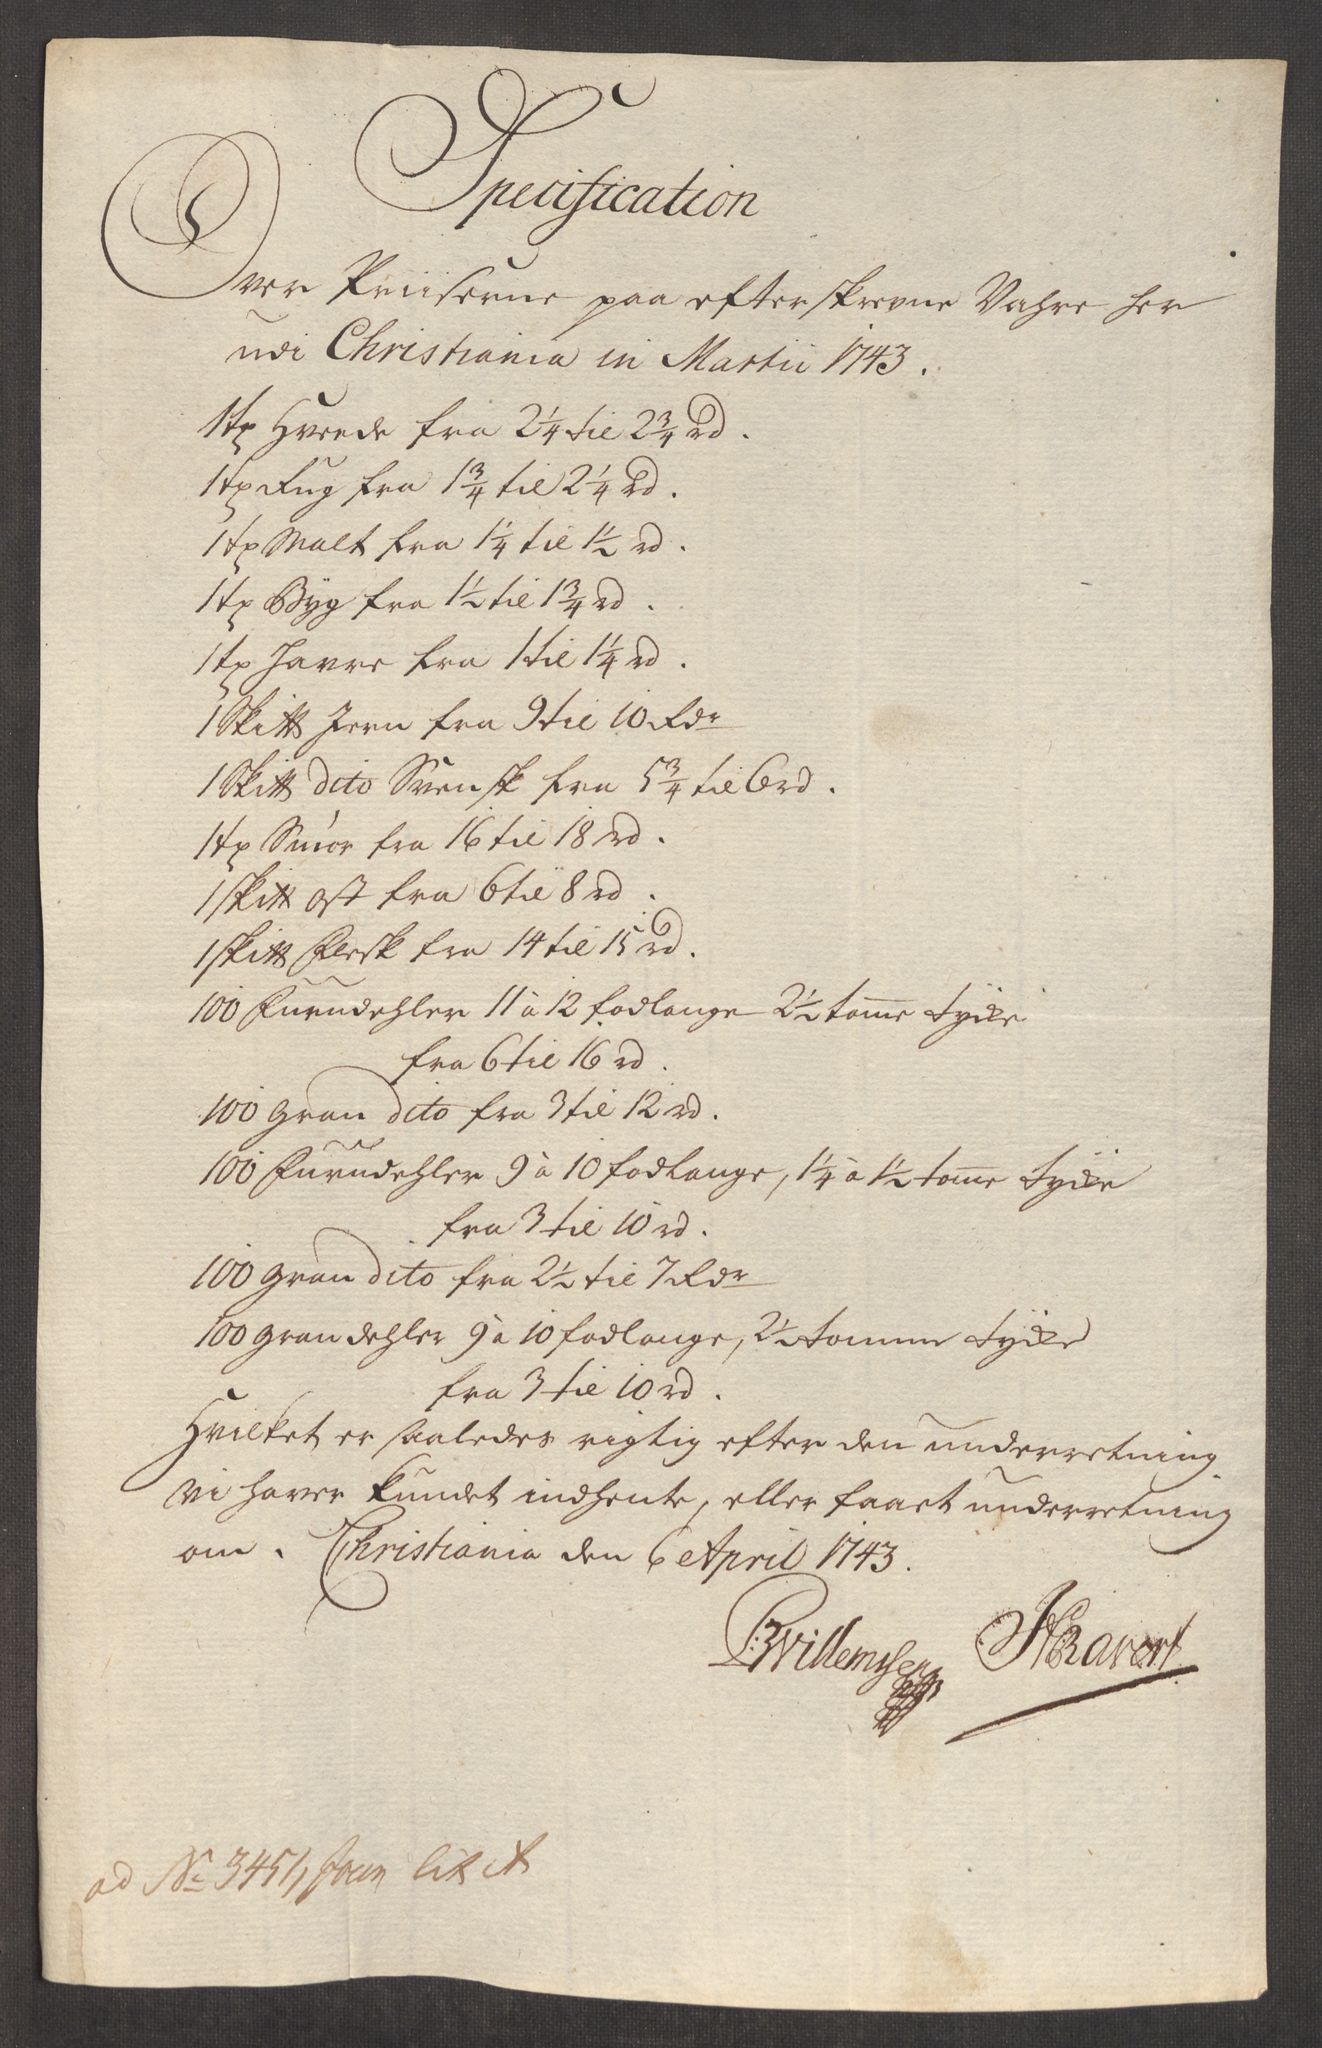 Specification
Over Priiserne paa efterskrevne Vahre her
udi Christiania in Martii 1743.
1 tp Hvede fra 2 1/4 til 2 3/4 rd.
1 tp Rug fra 1 3/4 til 2 1/4 rd.
1 tp Malt fra 1 1/4 til 1 1/2 rd.
1 tp Byg fra 1 1/2 til 1 3/4 rd.
1 tp Havre fra 1 til 1 1/4 rd.
1 Skitt Jern fra 9 til 10 Rdr
1 Skitt dito Svensk fra 5 3/4 til 6 rd.
1 tp Smör fra 16 til 18 rd.
1 skitt Ost fra 6 til 8 rd.
1 skitt Flesk fra 14 til 15 rd.
100 Furudehler 11 à 12 fodlange 2 1/2 tomme tycke
fra 6 til 16 rd.
100 gran dito fra 3 til 12 rd.
100 Furudehler 9 à 10 fodlange, 1 1/4 à 1 1/2 tomme tycke
fra 3 til 10 rd.
100 gran dito fra 2 1/2 til 7 Rdr
100 grandehler 9 à 10 fodlange, 2 1/2 tomme tycke
fra 3 til 10 rd.
Hvilket er saaledes rigtig efter den underretning
vi haver kundet indhente, eller faaet underretning
om. Christiania den 6 April 1743.
PWillemsen HRavert
ad No 3451, Joun Lit A